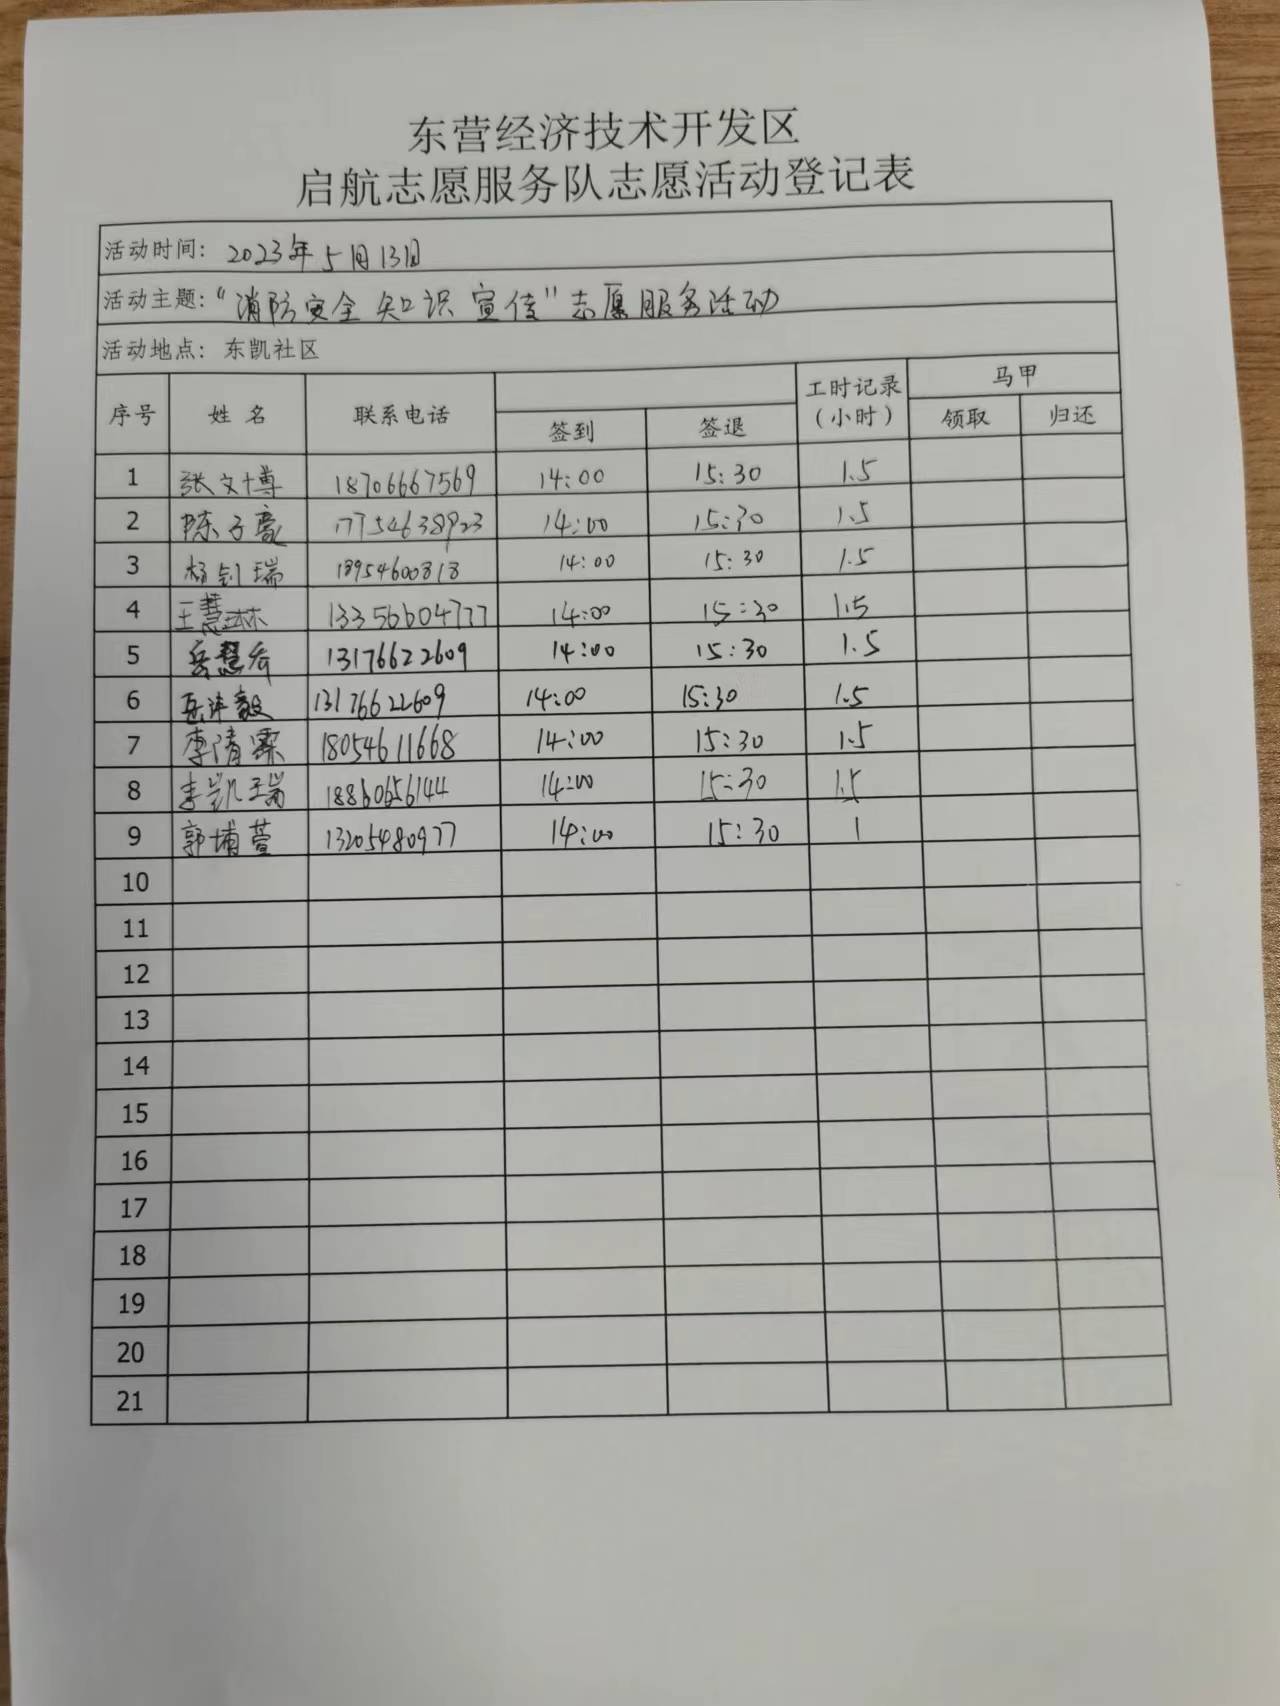 东营经济技术开发区
启航志愿服务队志愿活动登记表
活动时间: 2023年5月13日
活动主题: “消防安全知识宣传”志愿服务活动
活动地点: 东凯社区
序号 姓名 联系电话 签到 签退 工时记录(小时) 马甲 领取 归还
1 张文博 18706667569 14:00 15:30 1.5
2 陈子豪 17754638923 14:00 15:30 1.5
3 杨钊瑞 18954600818 14:00 15:30 1.5
4 王慧琳 13356604777 14:00 15:30 1.5
5 岳慧 13176622609 14:00 15:30 1.5
6 岳沣毅 13176622609 14:00 15:30 1.5
7 李清霖 18054611668 14:00 15:30 1.5
8 李凯瑞 18860656144 14:00 15:30 1.5
9 郭埔萱 13205480977 14:00 15:30 1
10
11
12
13
14
15
16
17
18
19
20
21